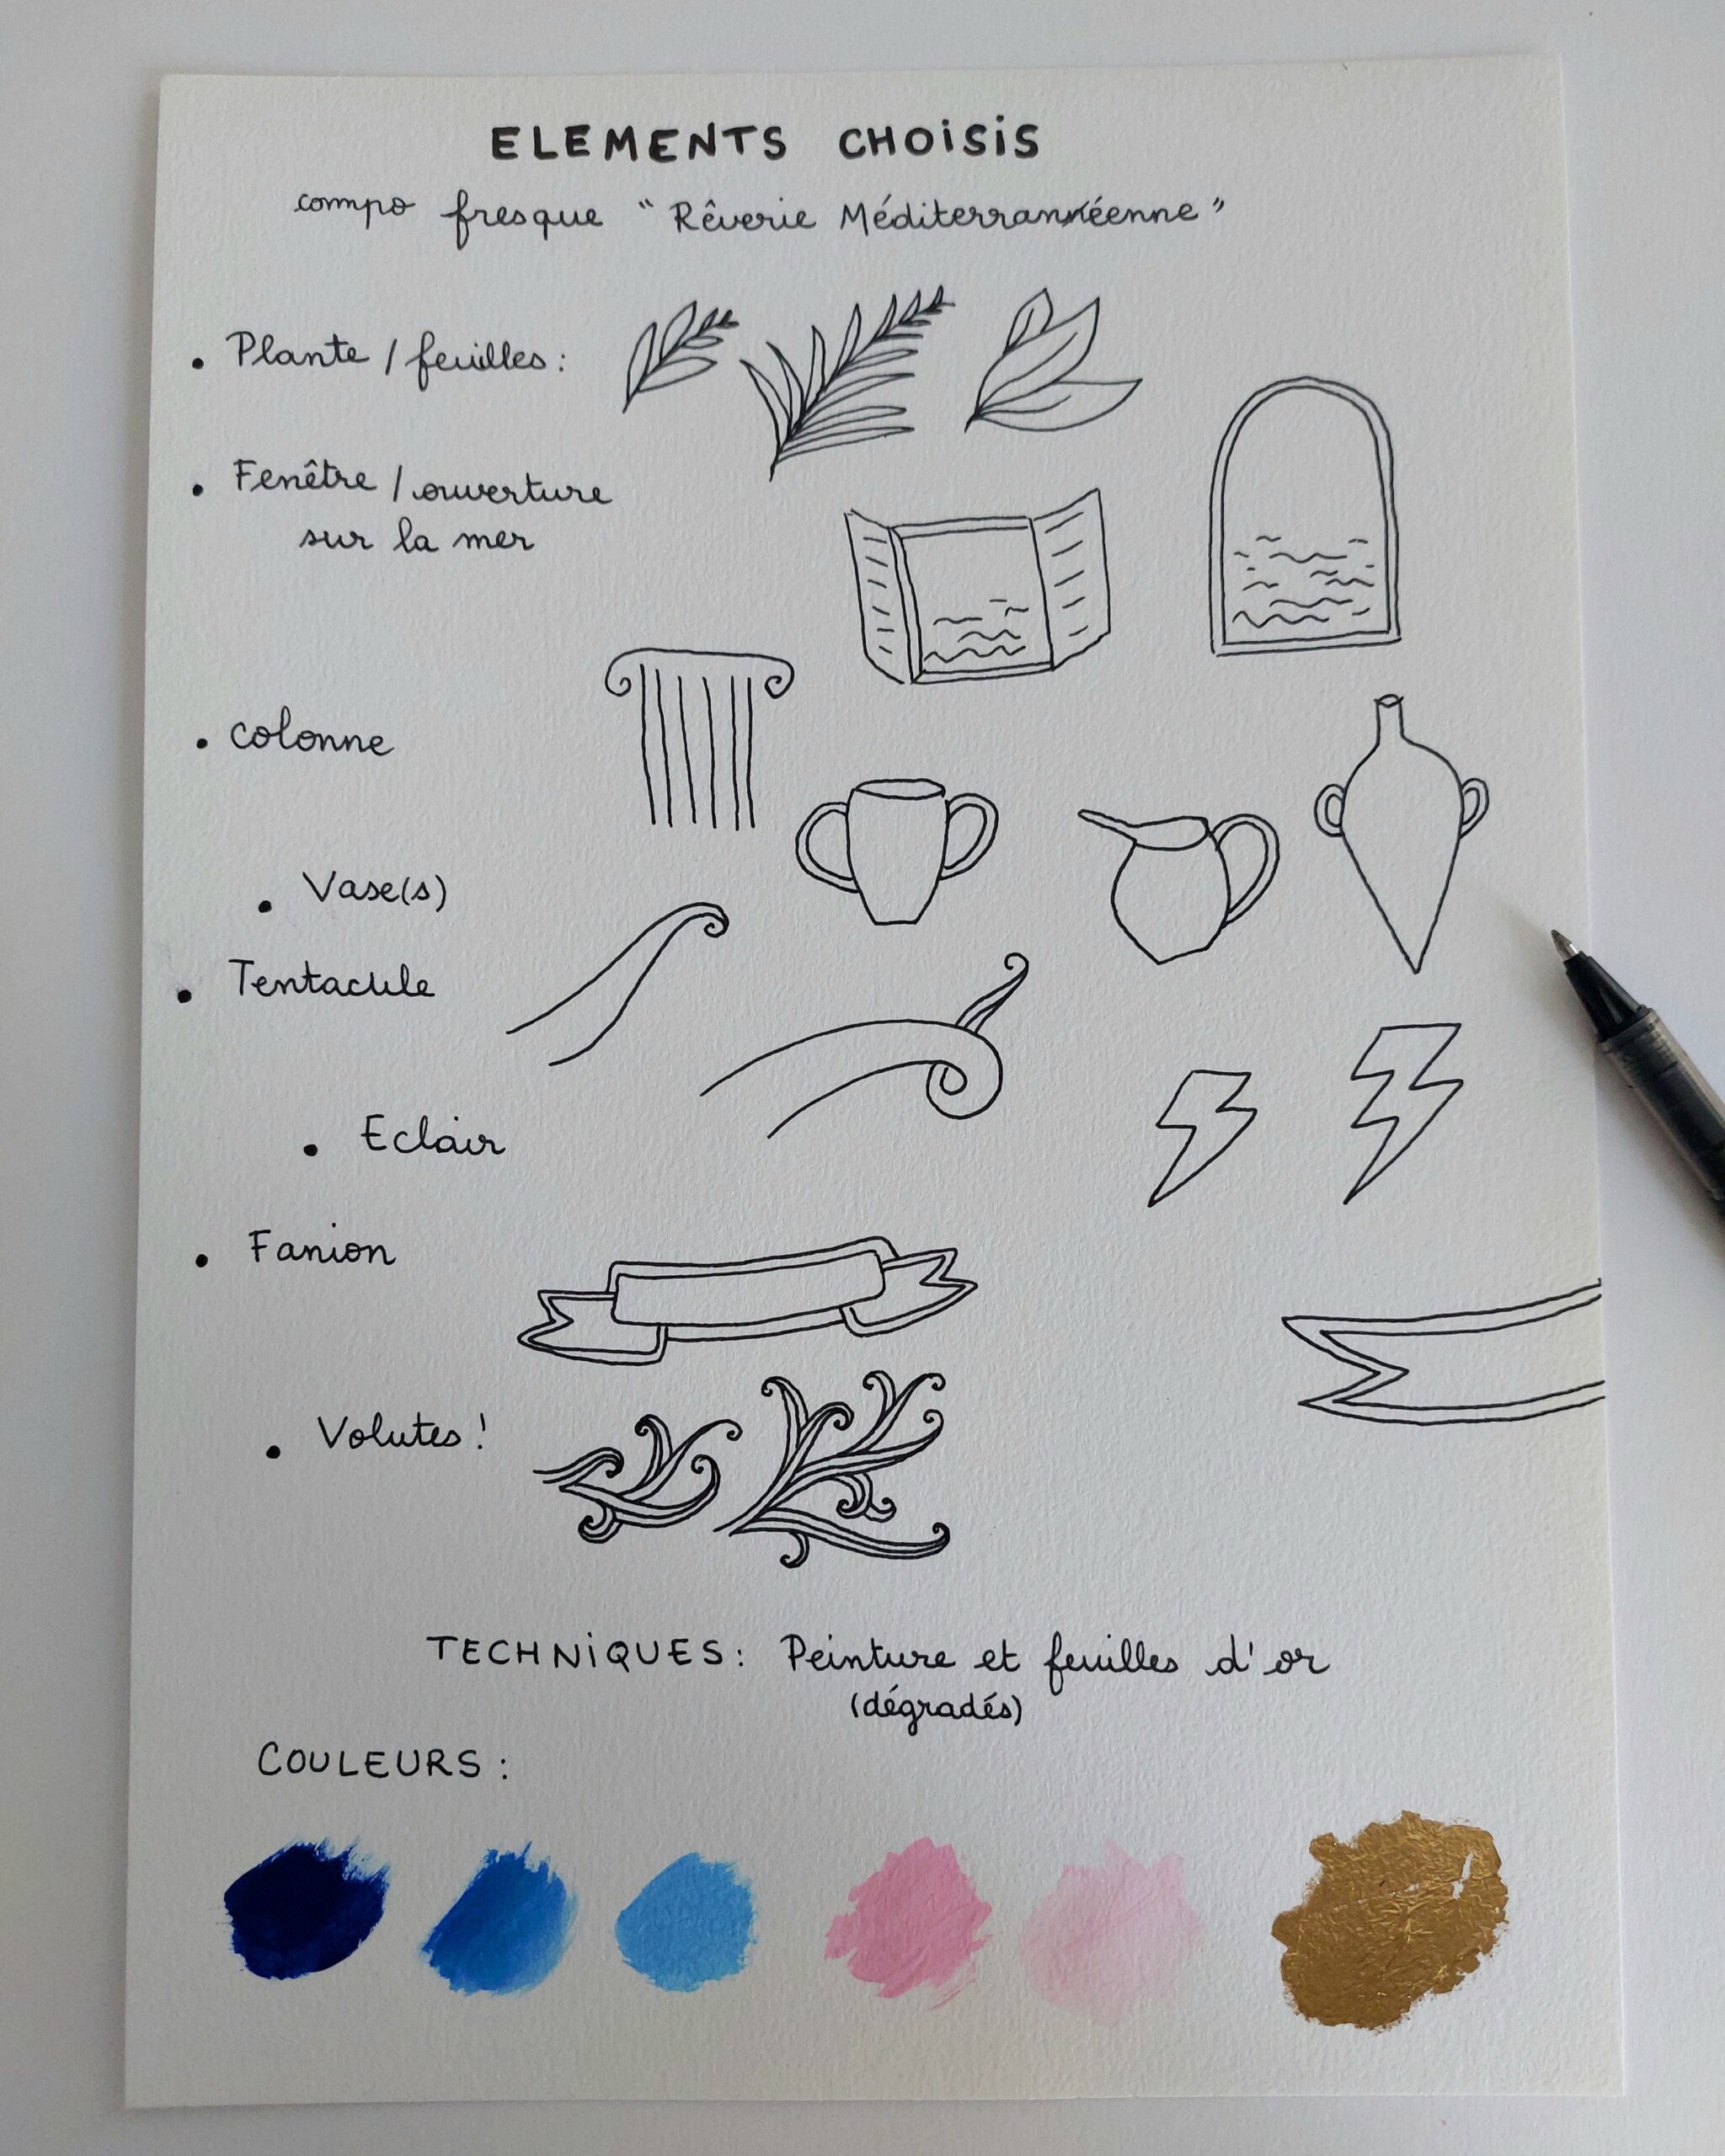 ELEMENTS CHOISIS
compo fresque "Rêverie Méditerranéenne"
• Plante / feuilles :
• Fenêtre / ouverture
sur la mer
• colonne
• Vase(s)
• Tentacule
• Eclair
• Fanion
• Volutes !
TECHNIQUES : Peinture et feuilles d'or
(dégradés)
COULEURS :